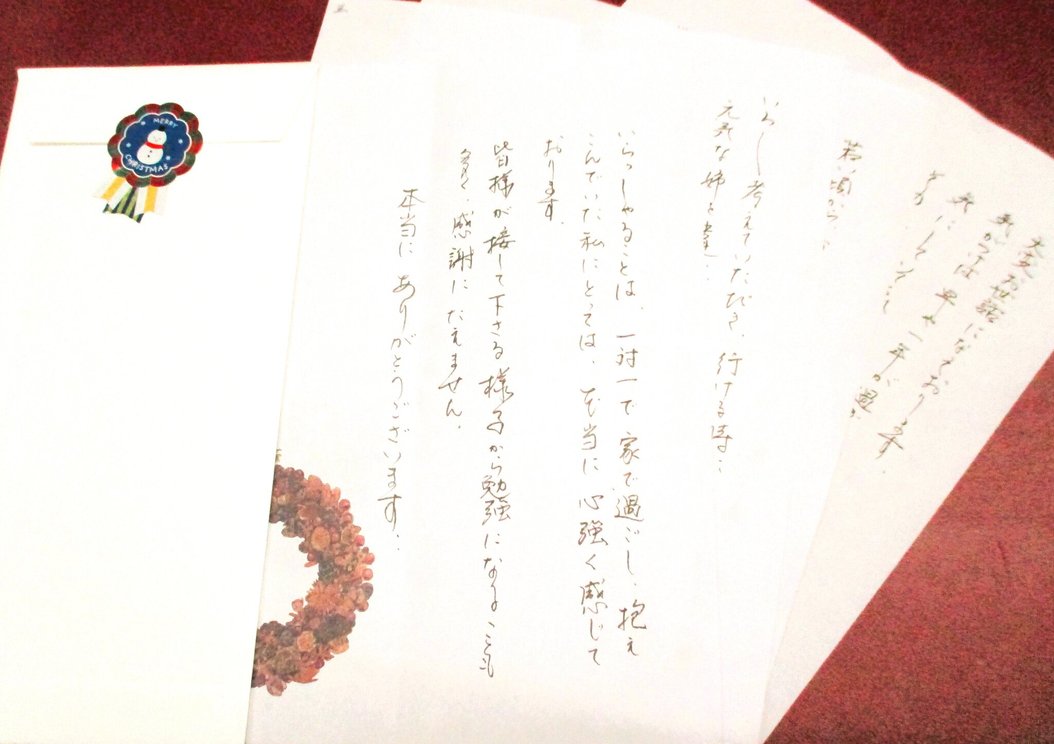 MERRY
CHRISTMAS
大変お世話になっております。
気がつけば早や一年が過ぎ
若い頃から
いろいろ考えていただき、行ける時に
元気な姉と違い
いらっしゃることは、一対一で家で過ごし、抱え
こんでいた私にとっては、本当に心強く感じて
おります。
皆様が接して下さる様子から勉強になることも
多く、感謝にたえません。
本当にありがとうございます。